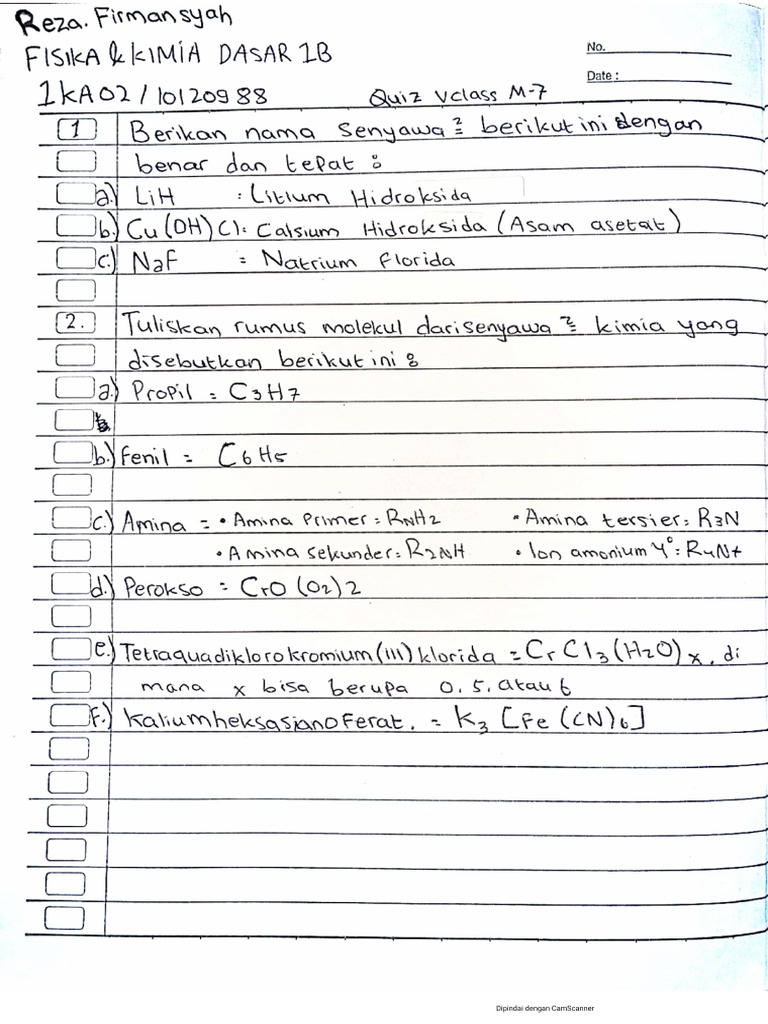 Reza. Firmansyah
FISIKA & KIMIA DASAR 1B
No.
Date :
1KA02 / 10120988
Quiz Vclass M-7
1 Berikan nama senyawa² berikut ini dengan
benar dan tepat :
a.) LiH : Litium Hidroksida
b.) Cu(OH)Cl : Calsium Hidroksida (Asam asetat)
c.) NaF = Natrium Florida
2. Tuliskan rumus molekul dari senyawa² kimia yang
disebutkan berikut ini :
a.) Propil = C3H7
b.) Fenil = C6H5
c.) Amina = • Amina Primer : RNH2 • Amina tersier : R3N
• Amina sekunder : R2NH • Ion amonium 4° : R4N+
d.) Perokso = CrO(O2)2
e.) Tetraquadiklorokromium(III) klorida = CrCl3(H2O)x, di
mana x bisa berupa 0.5. atau 6
F.) Kaliumheksasianoferat. = K3 [Fe(CN)6]
Dipindai dengan CamScanner